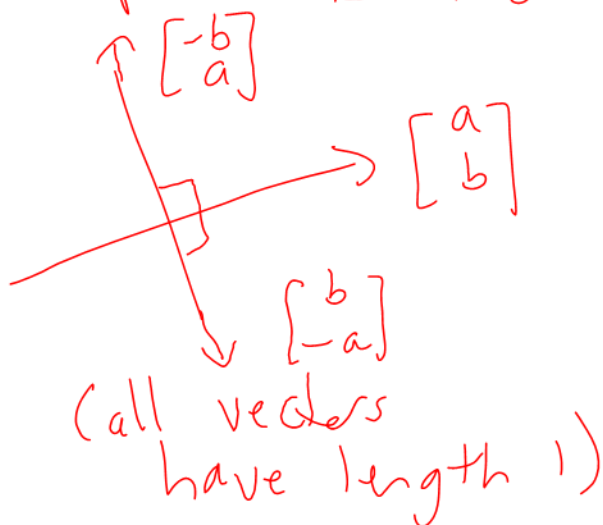 [-b
a]
[a
b]
[b
-a]
(all vectors
have length 1)